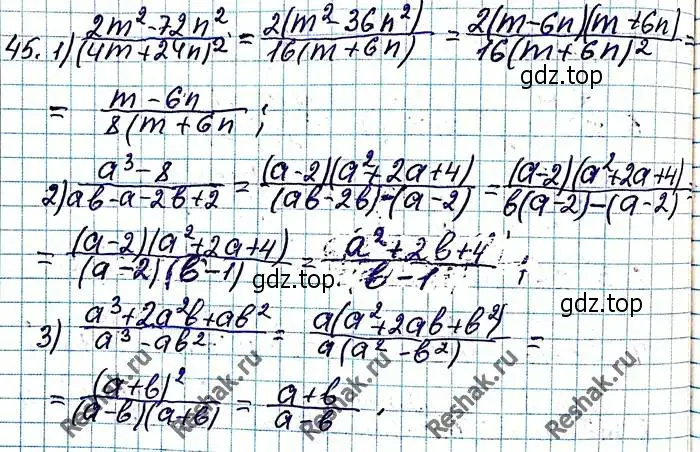 45. 1) (2m² - 72n²)/(4m+24n)² = 2(m² - 36n²)/16(m+6n) = 2(m-6n)(m+6n)/16(m+6n)² =
gdz.top
= (m-6n)/8(m+6n ;
2) (a³-8)/(ab-a-2b+2) = (a-2)(a²+2a+4)/(ab-2b)-(a-2) = (a-2)(a²+2a+4)/b(a-2)-(a-2) =
= (a-2)(a²+2a+4)/(a-2)(b-1) = (a²+2b+4)/(b-1) ;
gdz.top
gdz.top
3) (a³+2a²b+ab²)/(a³-ab²) = a(a²+2ab+b²)/a(a²-b²) =
= (a+b)²/(a-b)(a+b) = (a+b)/(a-b) .
Reshak.ru
Reshak.ru
Reshak.ru
Reshak.ru
Reshak.ru